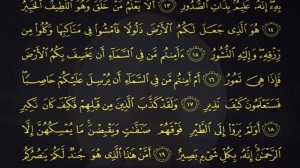 إِنَّهُۥ عَلِيمٌۢ بِذَاتِ ٱلصُّدُورِ ١٣ أَلَا يَعۡلَمُ مَنۡ خَلَقَ وَهُوَ ٱللَّطِيفُ ٱلۡخَبِيرُ
١٤ هُوَ ٱلَّذِي جَعَلَ لَكُمُ ٱلۡأَرۡضَ ذَلُولٗا فَٱمۡشُواْ فِي مَنَاكِبِهَا وَكُلُواْ مِن
رِّزۡقِهِۦۖ وَإِلَيۡهِ ٱلنُّشُورُ ١٥ ءَأَمِنتُم مَّن فِي ٱلسَّمَآءِ أَن يَخۡسِفَ بِكُمُ ٱلۡأَرۡضَ
فَإِذَا هِيَ تَمُورُ ١٦ أَمۡ أَمِنتُم مَّن فِي ٱلسَّمَآءِ أَن يُرۡسِلَ عَلَيۡكُمۡ حَاصِبٗاۖ
فَسَتَعۡلَمُونَ كَيۡفَ نَذِيرِ ١٧ وَلَقَدۡ كَذَّبَ ٱلَّذِينَ مِن قَبۡلِهِمۡ فَكَيۡفَ كَانَ نَكِيرِ
١٨ أَوَلَمۡ يَرَوۡاْ إِلَى ٱلطَّيۡرِ فَوۡقَهُمۡ صَٰٓفَّٰتٖ وَيَقۡبِضۡنَۚ مَا يُمۡسِكُهُنَّ إِلَّا
ٱلرَّحۡمَٰنُۚ إِنَّهُۥ بِكُلِّ شَيۡءِۭ بَصِيرٌ ١٩ أَمَّنۡ هَٰذَا ٱلَّذِي هُوَ جُندٞ لَّكُمۡ يَنصُرُكُم